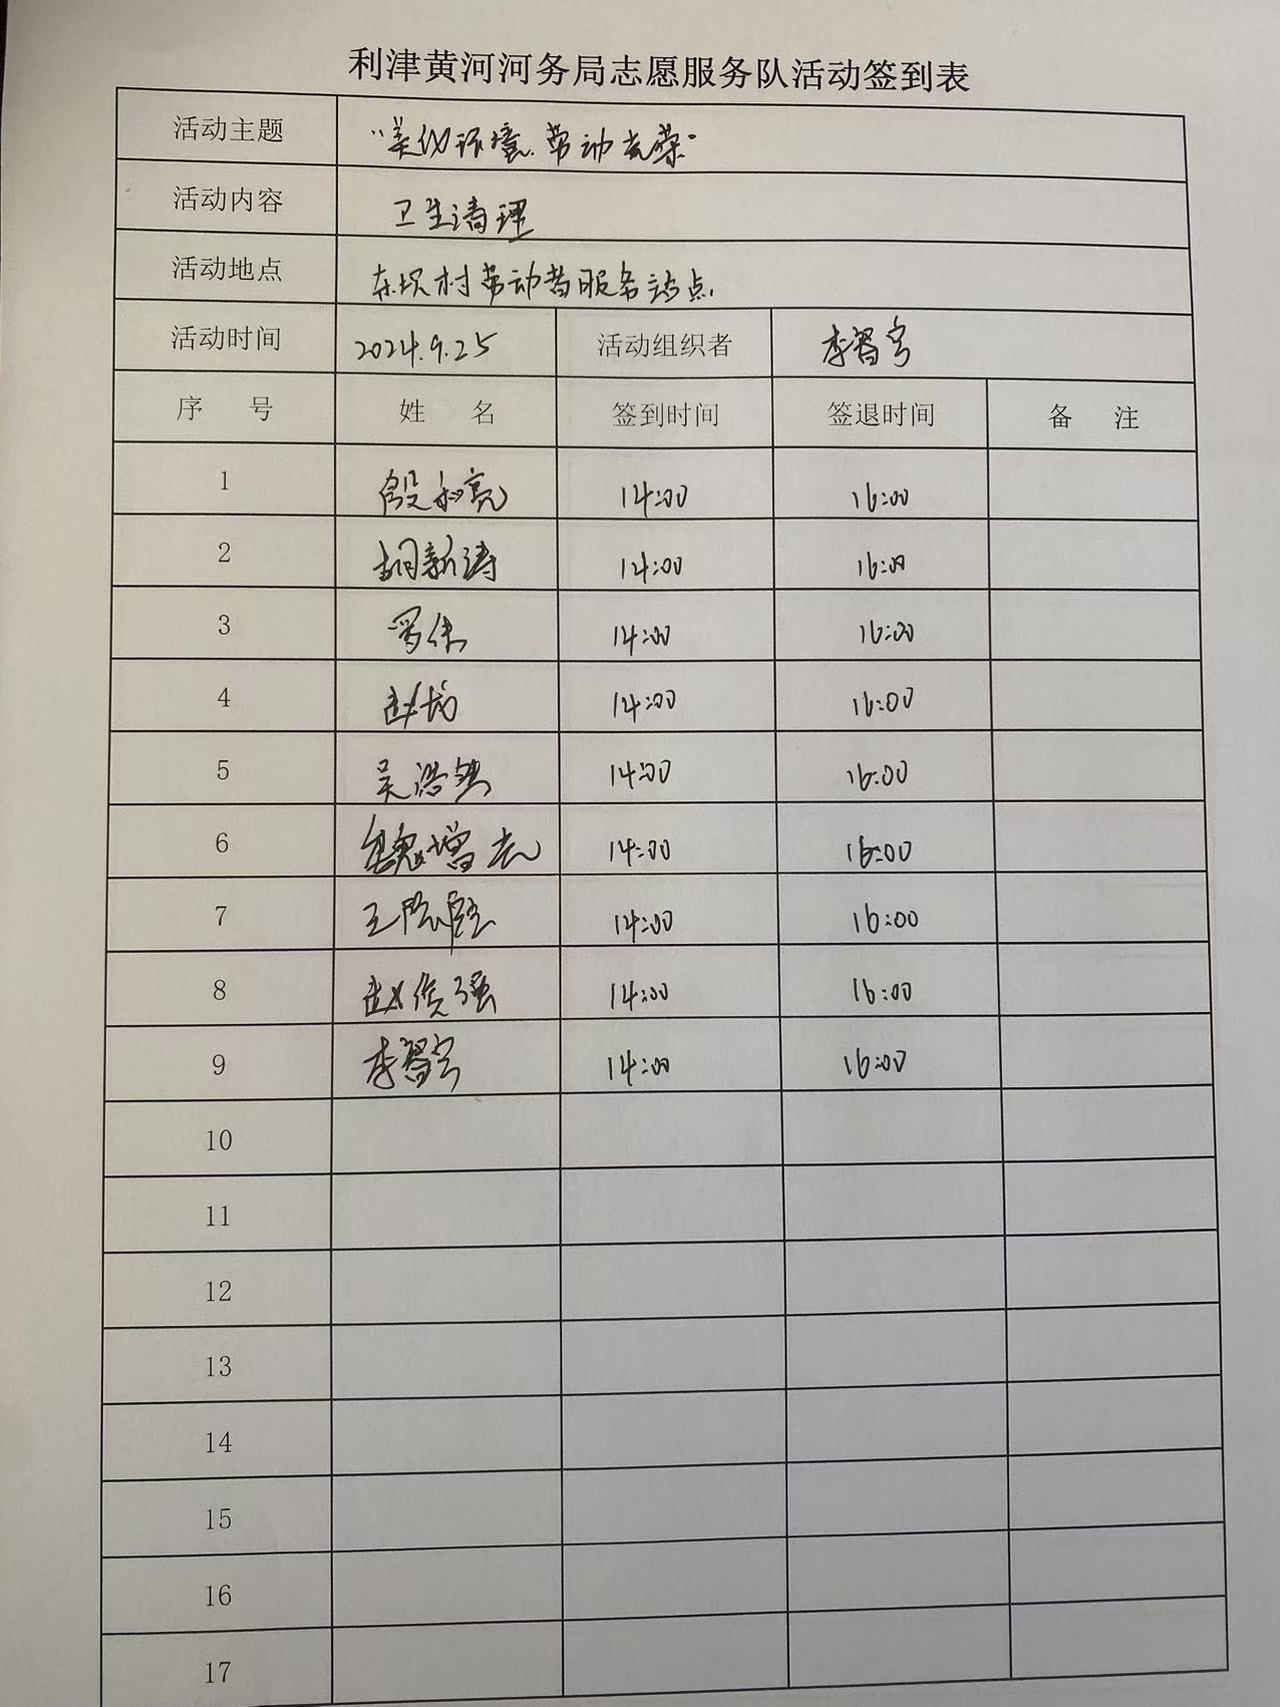 利津黄河河务局志愿服务队活动签到表
活动主题 "美化环境、劳动光荣"
活动内容 卫生清理
活动地点 东坝村劳动者服务站点
活动时间 2024.9.25 活动组织者 李智宇
序 号 姓 名 签到时间 签退时间 备 注
1 14:00 16:00
2 胡新涛 14:00 16:00
3 14:00 16:00
4 14:00 16:00
5 吴浩然 14:00 16:00
6 魏增志 14:00 16:00
7 14:00 16:00
8 赵俊强 14:00 16:00
9 李智宇 14:00 16:00
10
11
12
13
14
15
16
17